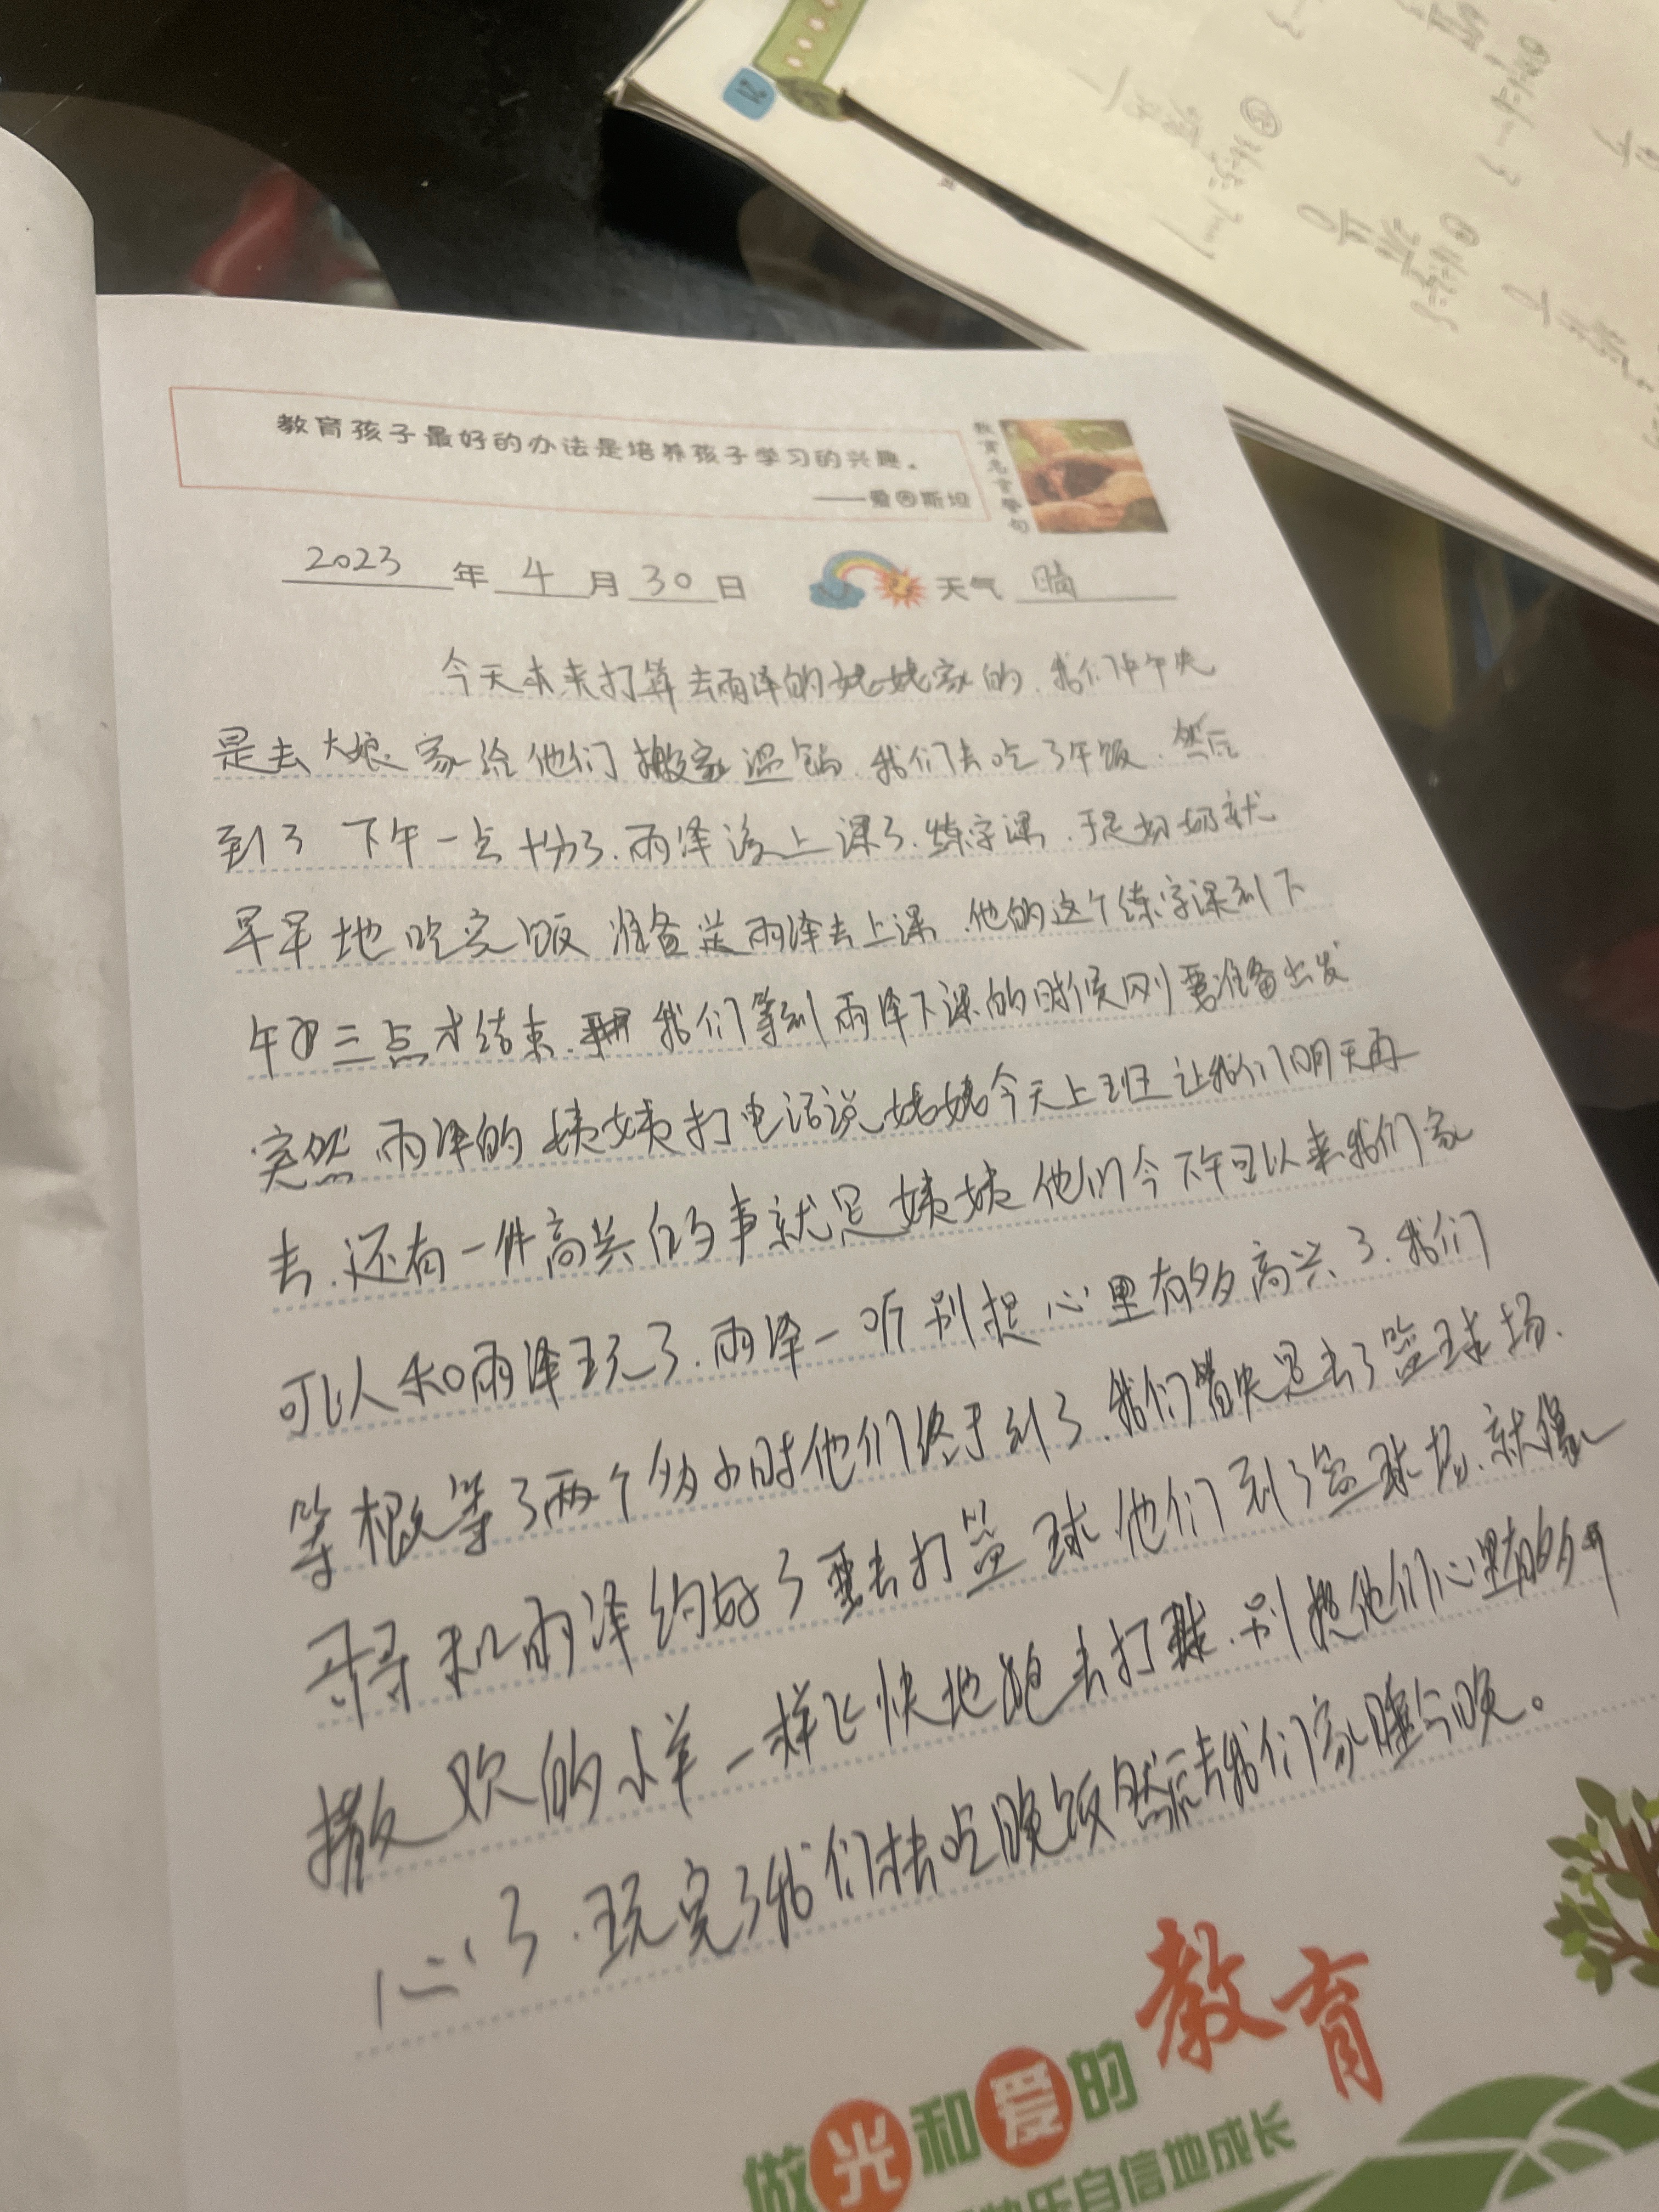 教育孩子最好的办法是培养孩子学习的兴趣。
——爱因斯坦
教育名言警句
2023年4月30日 天气 晴
今天本来打算去雨泽的姥姥家的.我们中午先
是去大娘家给他们搬家温锅.我们去吃了午饭.然后
到了下午一点十分了.雨泽该上课了.练字课.于是奶奶就
早早地吃完饭准备送雨泽去上课.他的这个练字课到下
午三点才结束.我们等到雨泽下课的时候刚要准备出发
突然雨泽的姨姨打电话说姥姥今天上班让我们明天再
去.还有一件高兴的事就是姨姨他们今下午可以来我们家
可以和雨泽玩了.雨泽一听别提心里有多高兴了.我们
等根等了两个多小时他们终于到了.我们首先是去了篮球场.
寻寻和雨泽约好了要去打篮球他们到了篮球场.就像
撒欢的小羊一样飞快地跑去打球.别提他们心里有多开
心了.玩完了我们去吃晚饭然后去我们家睡今晚。
做光和爱的教育
快乐自信地成长